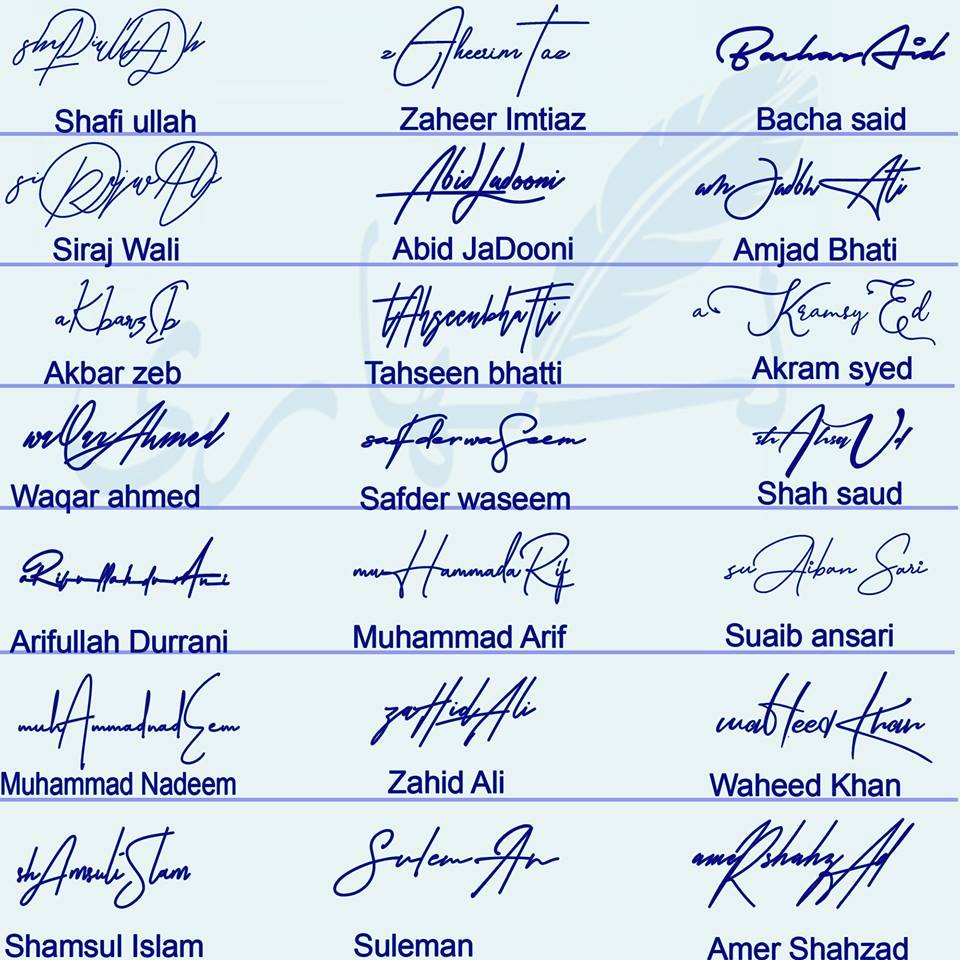 zAheerimTaz
Shafi ullah Zaheer Imtiaz Bacha said
AbidJadooni
Siraj Wali Abid JaDooni Amjad Bhati
aKbarzEb tAhseenbhaTti aKramsyEd
Akbar zeb Tahseen bhatti Akram syed
waQarAhmed safderwaSeem shAhsaUd
Waqar ahmed Safder waseem Shah saud
aRifullahdurrAni muHammadaRif suAibanSari
Arifullah Durrani Muhammad Arif Suaib ansari
muhAmmadnadEem zaHidAli waHeedKhan
Muhammad Nadeem Zahid Ali Waheed Khan
shAmsuliSlam SulemAn ameRshahzAd
Shamsul Islam Suleman Amer Shahzad